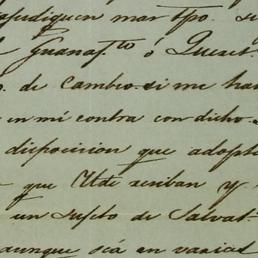 perjudiquen mas tpo. su
Guanajto ó Queret
de Cambio. si me ha
en mi contra con dicho
disposicion que adopte
que Uds. reciban y
un sujeto de Salvat
aunque séa en varias